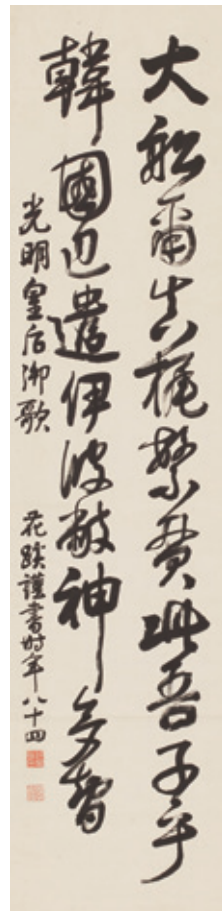 大船爾真梶繁貫此吾子乎
韓國辺遣伊波敝神多智
光明皇后御歌　花蹊謹書時年八十四